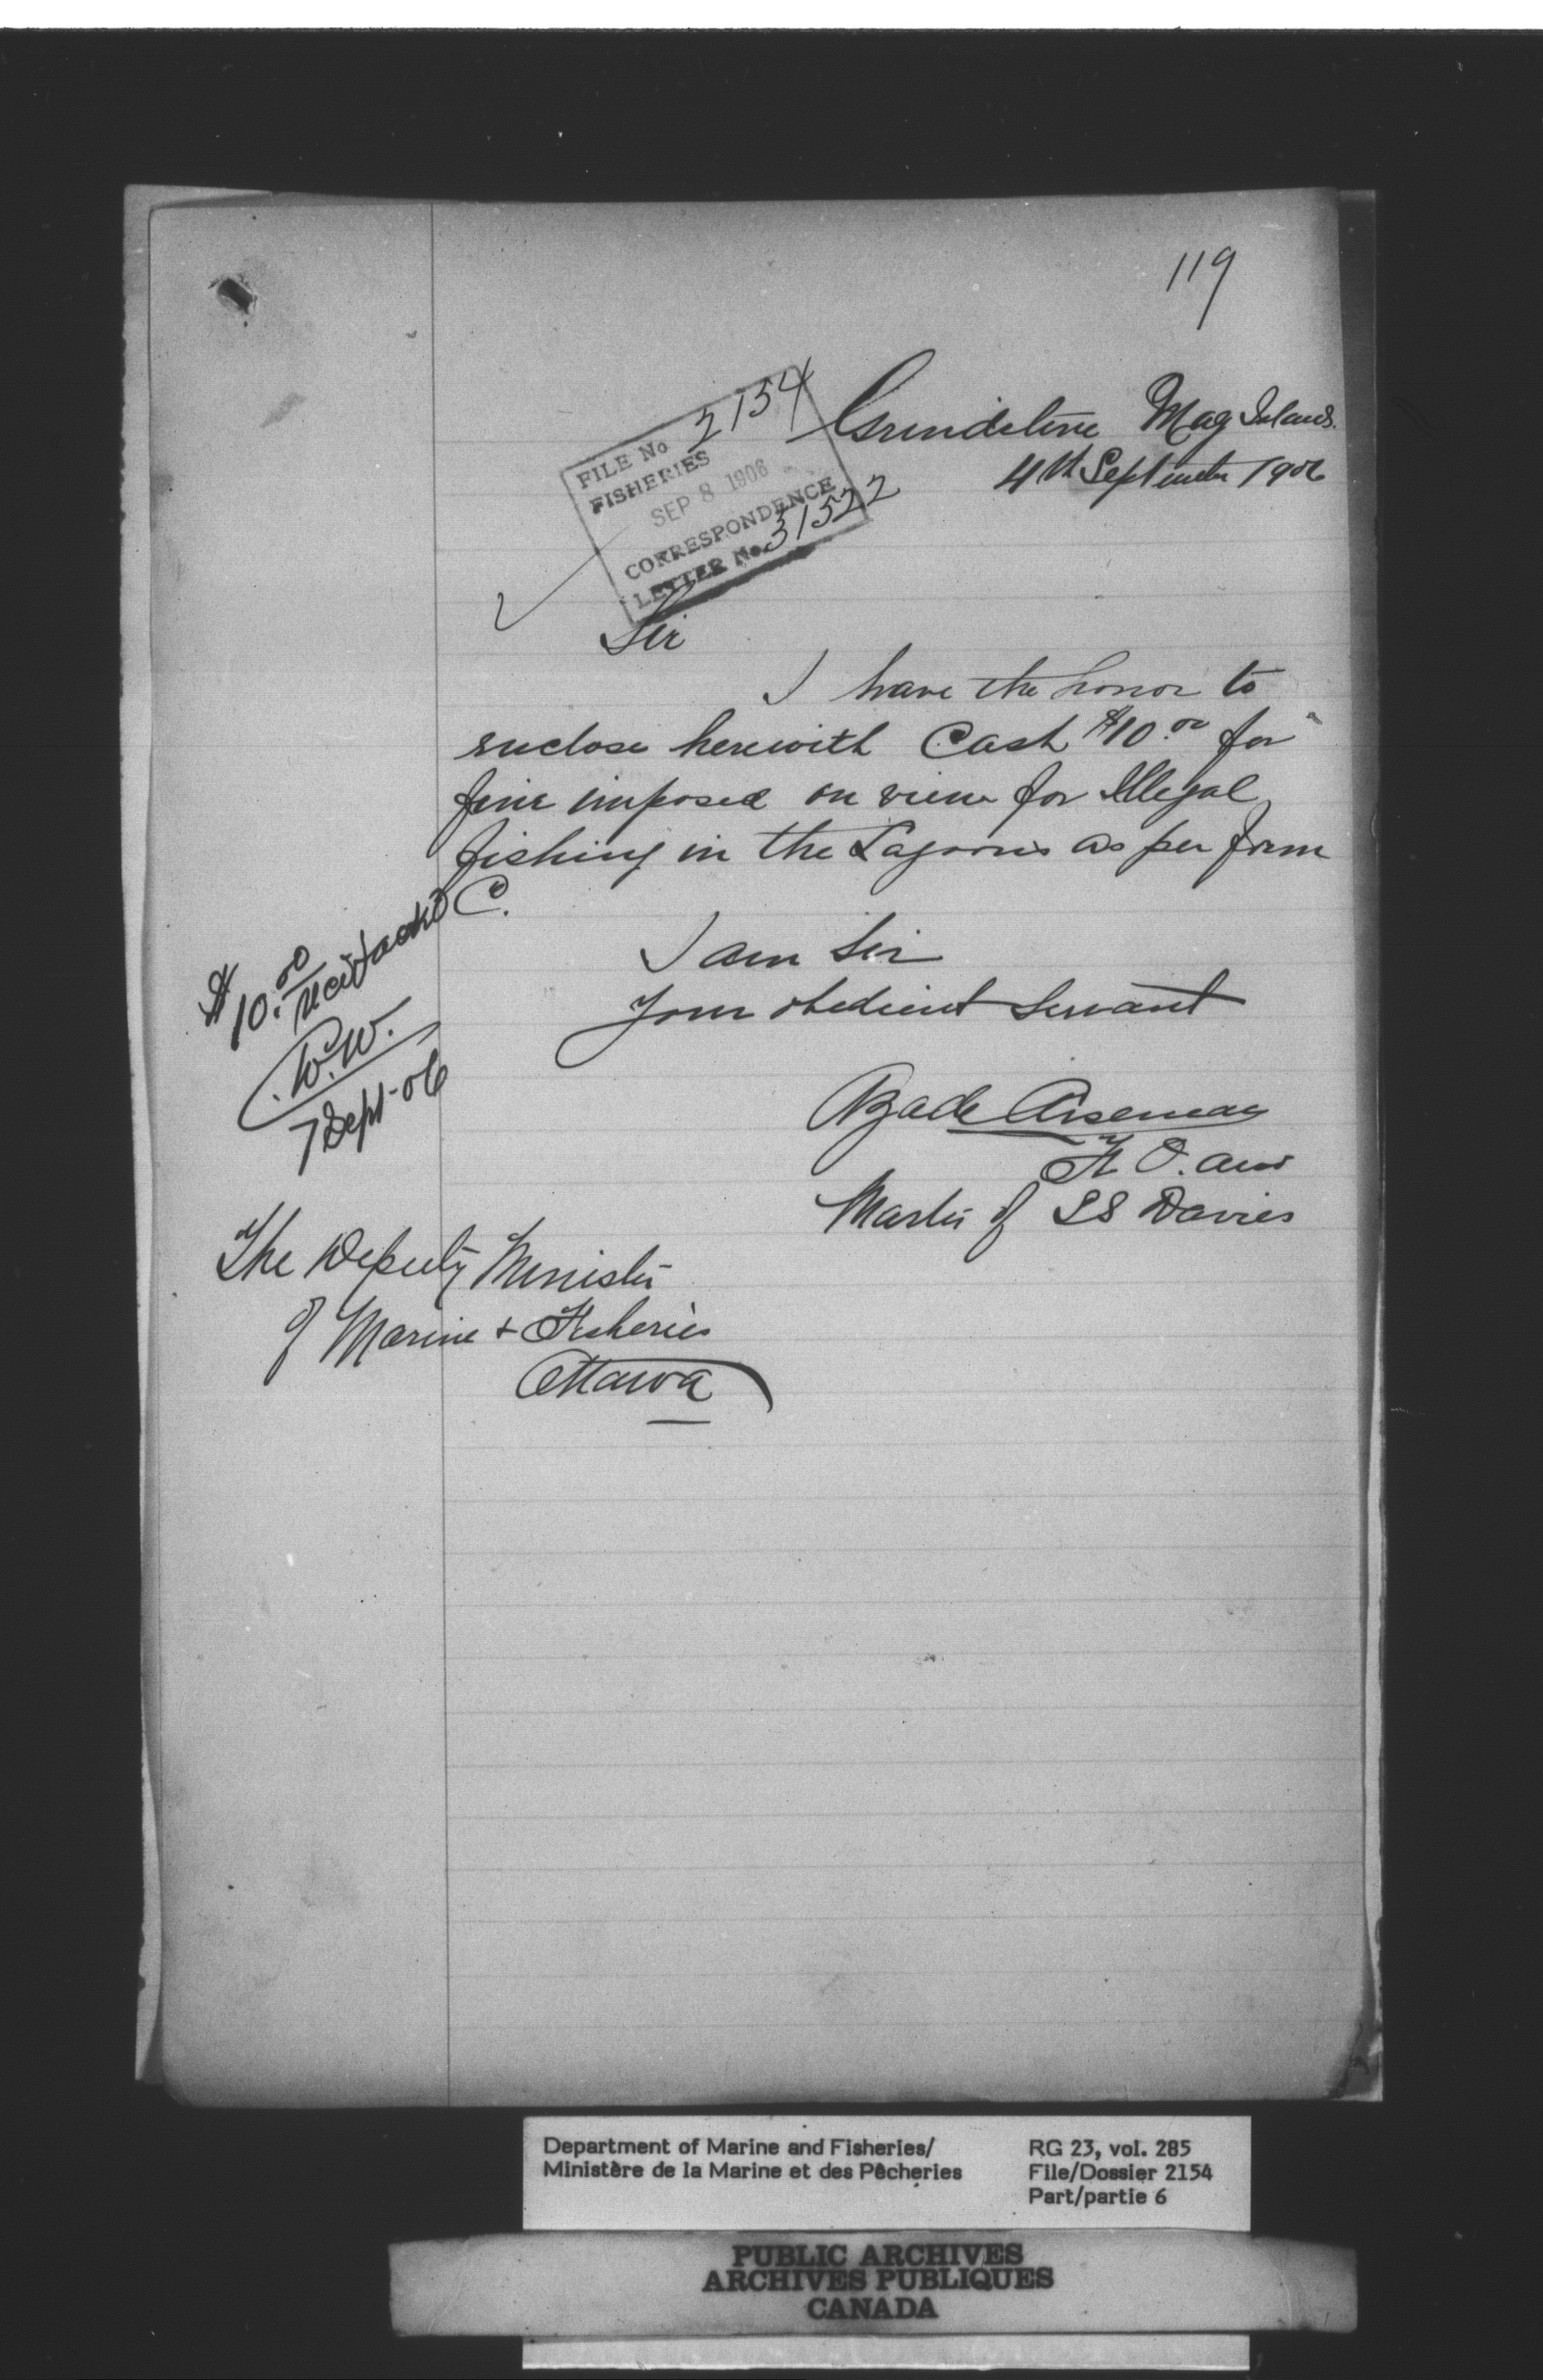 119
Grindstone Mag Islands.
4th September 1906
FILE No 2154
FISHERIES
SEP 8 1906
CORRESPONDENCE
LETTER No. 31522
Sir
I have the honor to
enclose herewith Cash $10.00 for
fine imposed on view for Illegal
fishing in the Lagoons as per form
C.
$10.00
W.W.
7 Sept-06
I am Sir
Your obedient Servant
Azade Arseneau
F O. and
Master of SS Davies
The Deputy Minister
of Marine + Fisheries
Ottawa
Department of Marine and Fisheries/
Ministère de la Marine et des Pêcheries
RG 23, vol. 285
File/Dossier 2154
Part/partie 6
PUBLIC ARCHIVES
ARCHIVES PUBLIQUES
CANADA